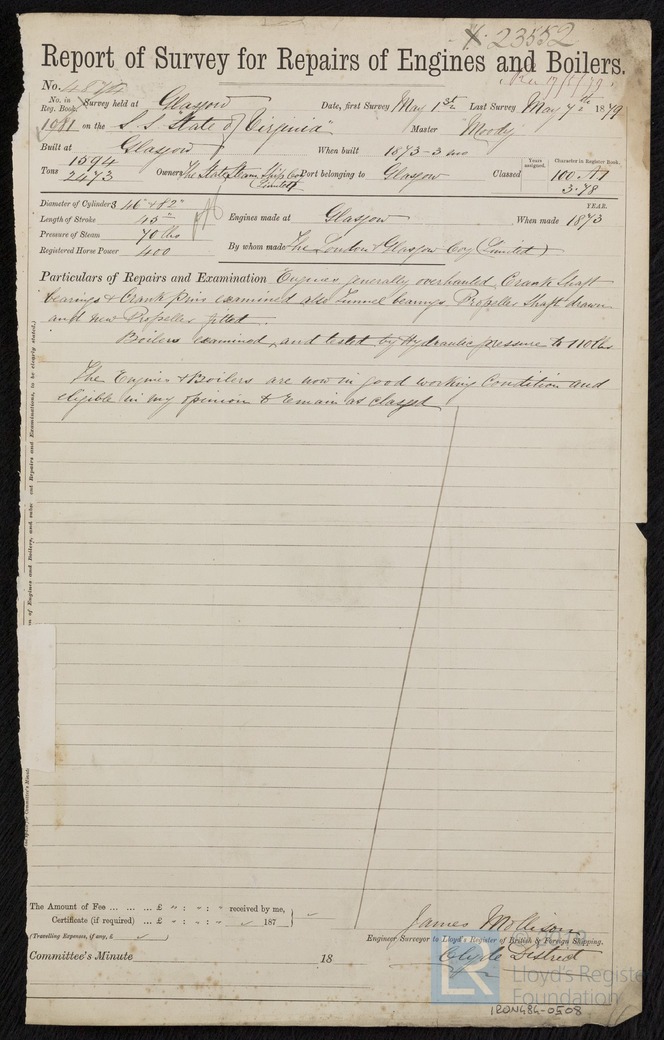 23552
Report of Survey for Repairs of Engines and Boilers.
No.
Rec 17/5/79
No. in Reg. Book. Survey held at Glasgow Date, first Survey May 1st Last Survey May 7th 1879
1081 on the S.S. "State of Virginia" Master Moody
Built at Glasgow When built 1873-3 mo
Tons 1594 2473 Owners The State Steam Ship Coy Limited Port belonging to Glasgow Classed
Years assigned. Character in Register Book.
100 A1
3.78
Diameter of Cylinders 46" & 82"
Length of Stroke 45"
Pressure of Steam 70 lbs
Registered Horse Power 400
YEAR.
Engines made at Glasgow When made 1873
By whom made The London & Glasgow Coy (Limited)
Particulars of Repairs and Examination Engines generally overhauled Crank Shaft
bearings & Crank Pins examined also Tunnel bearings Propeller Shaft drawn
and new Propeller fitted.
Boilers examined, and tested by Hydraulic pressure to 110 lbs
The Engines & Boilers are now in good working Condition and
eligible in my opinion to remain as classed
of Engines and Boilers, and Repairs and Examinations, to be clearly stated.)
The Amount of Fee ... ... ... £ " : " : " received by me,
Certificate (if required) ... £ " : " : " 187
(Travelling Expenses, if any, £ )
James Mollison
Engineer Surveyor to Lloyd's Register of British & Foreign Shipping.
Committee's Minute 18
Clyde District
LR
Lloyd's Register
Foundation
IRON484-0508